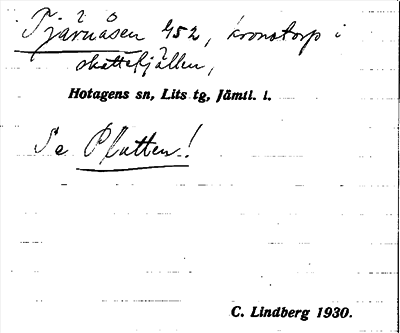 Tjärnåsen 452, kronotorp i
skattefjällen,
Hotagens sn, Lits tg, Jämtl. l.
Se Platten!
C. Lindberg 1930.